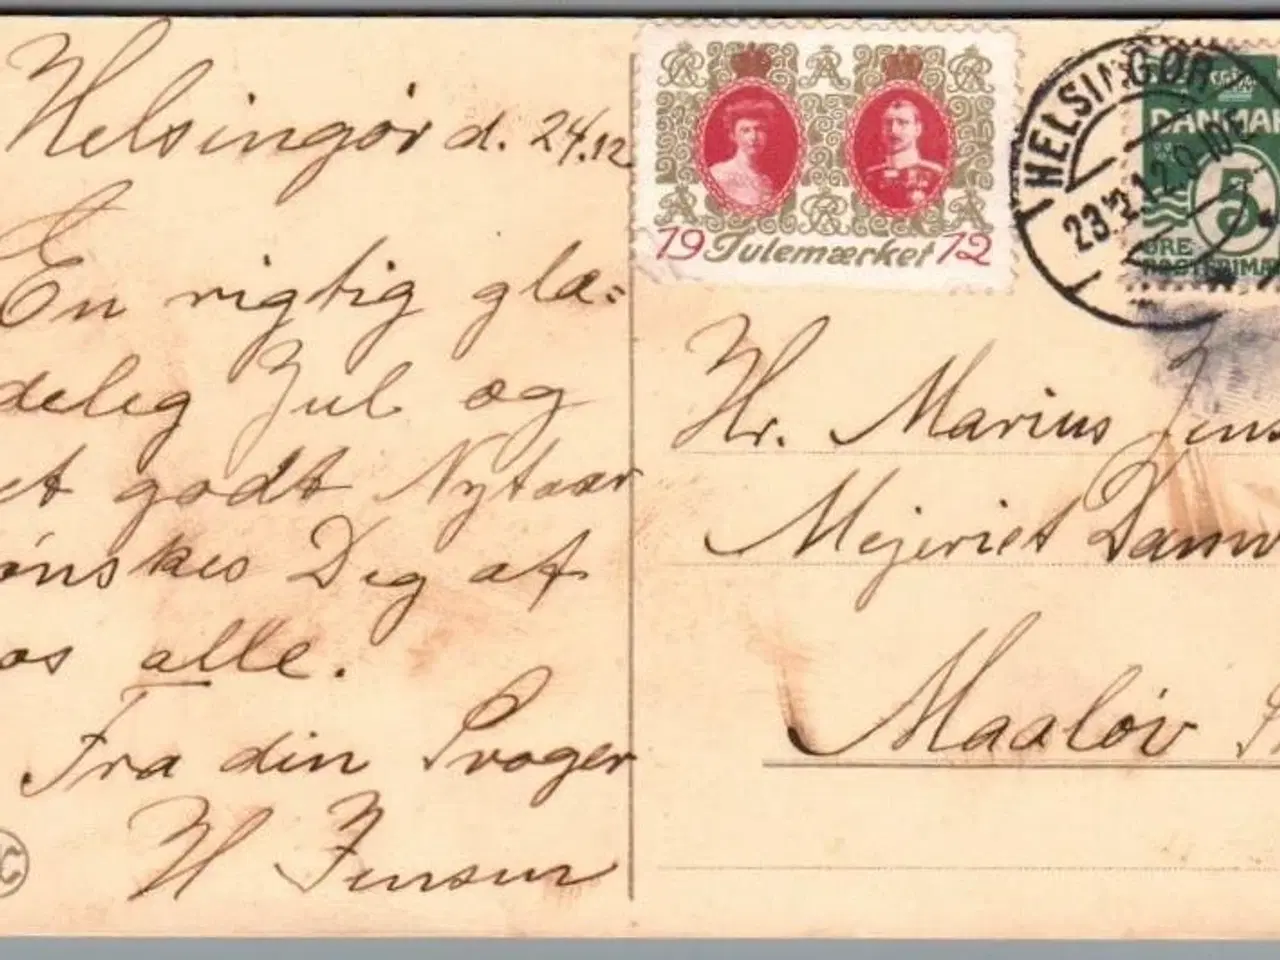 Helsingør d. 24.12
En rigtig glæ=
delig Jul og
et godt Nytaar
ønskes Dig af
os alle.
Fra din Svoger
H Jensen
19 Julemærket 12
HELSINGØR
23.12.12.9-10E
DANMARK
5
ØRE
Hr. Marius Jens
Mejeriet Danw
Maaløv St